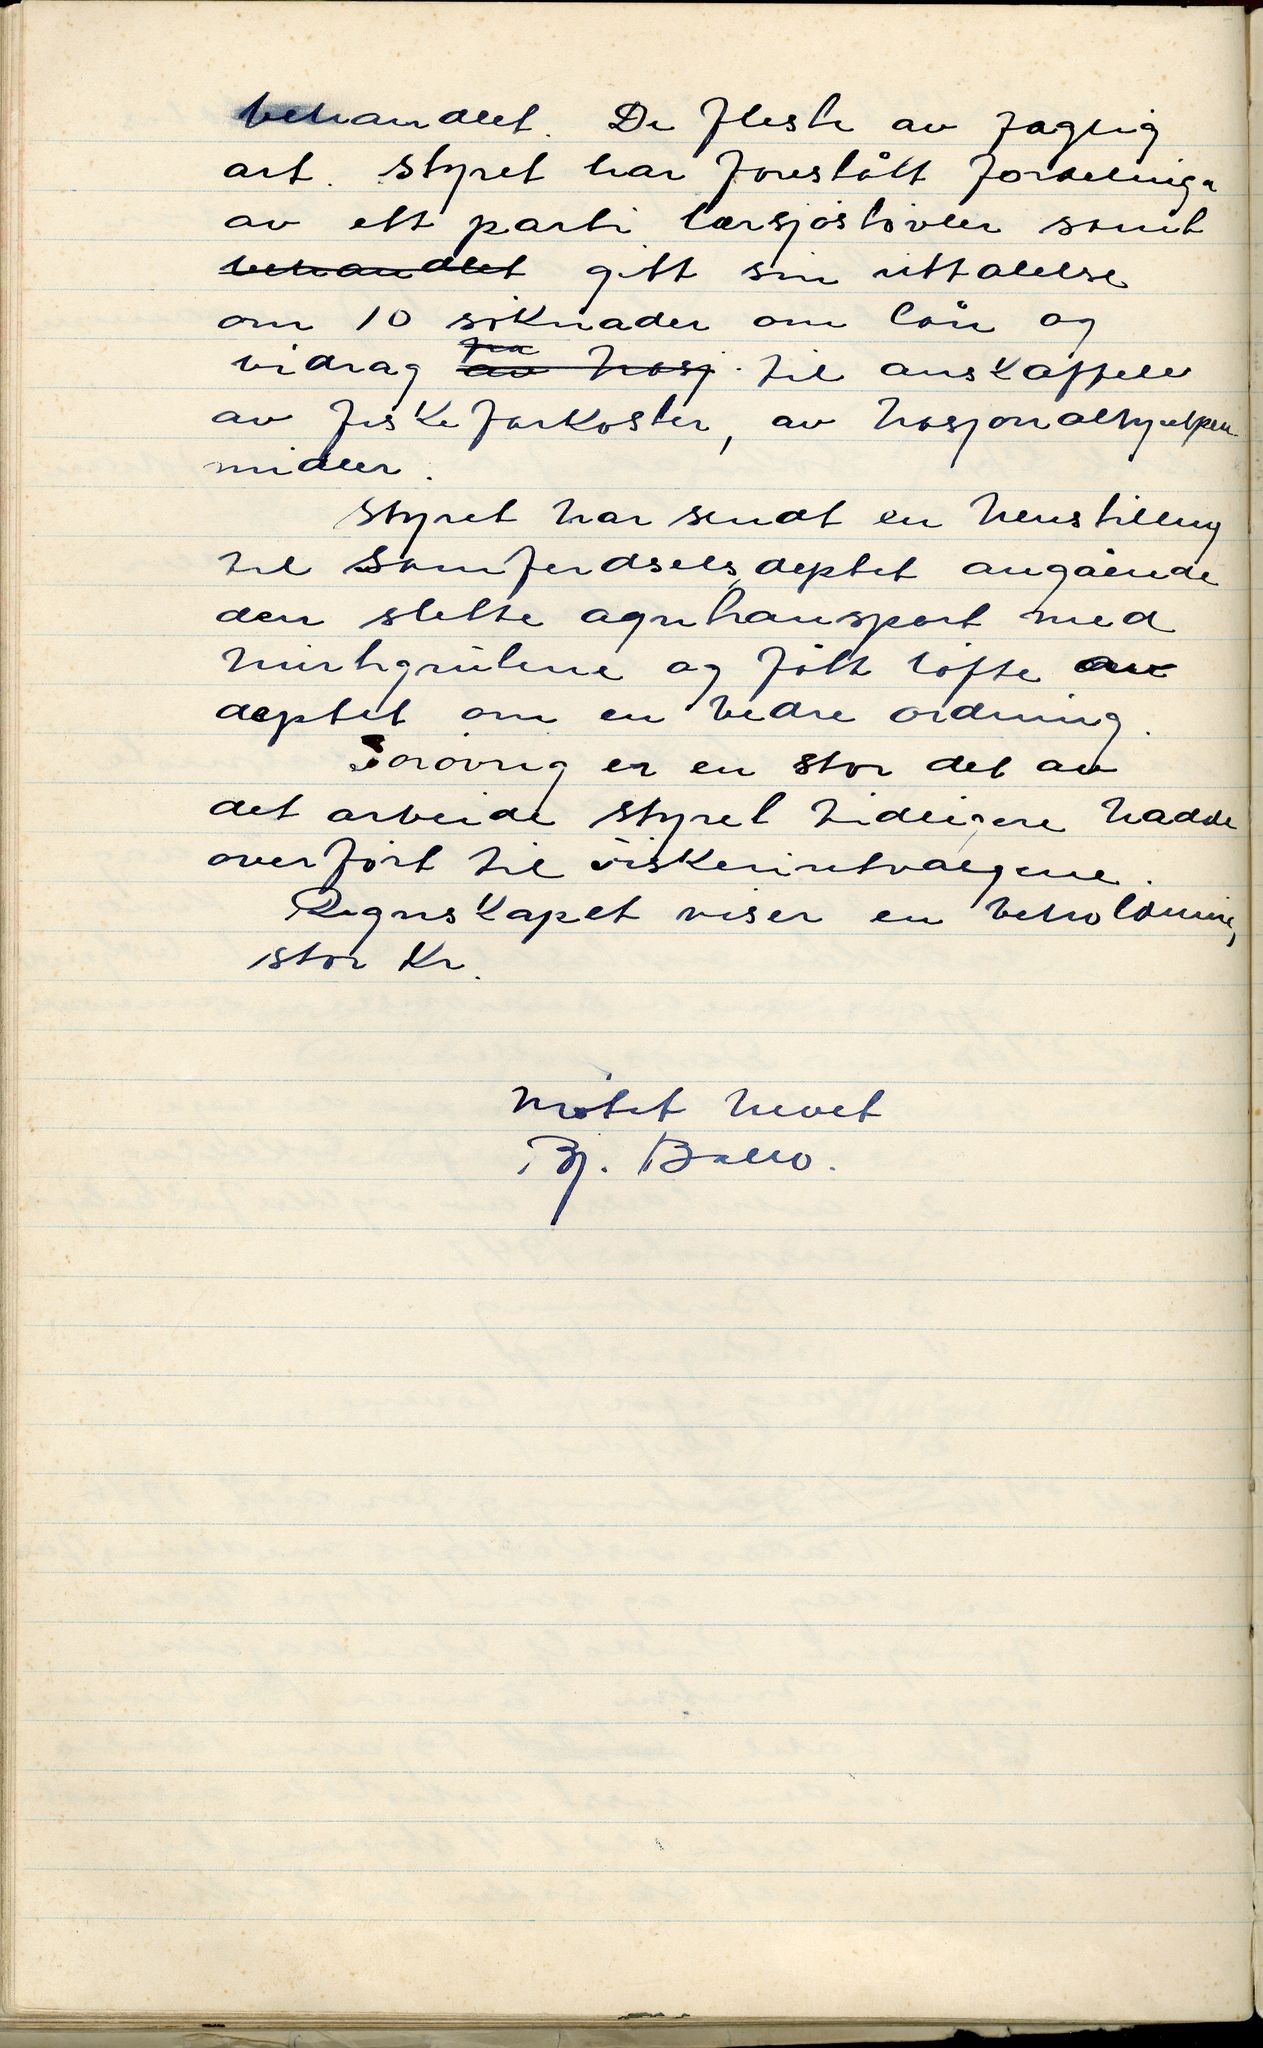 behandlet. De fleste av faglig
art. Styret har foreslått fordelinga
av ett parti lærsjøstøvler samt
behandlet gitt sin uttalelse
om 10 søknader om lån og
vidrag av nasj. fra til anskaffelse
av fiskefarkoster, av nasjonalhjelpen
midler.
Styret har sendt en henstilling
til Samferdselsdeptet angående
den slette agntransport med
hurtigrutene og fått løfte av
deptet om en bedre ordning.
Forøvrig er en stor del av
det arbeide styret tidligere hadde
overført til fiskeriutvalgene.
Regnskapet viser en beholdning
stor kr.
Møtet hevet
Bj. Ballo.